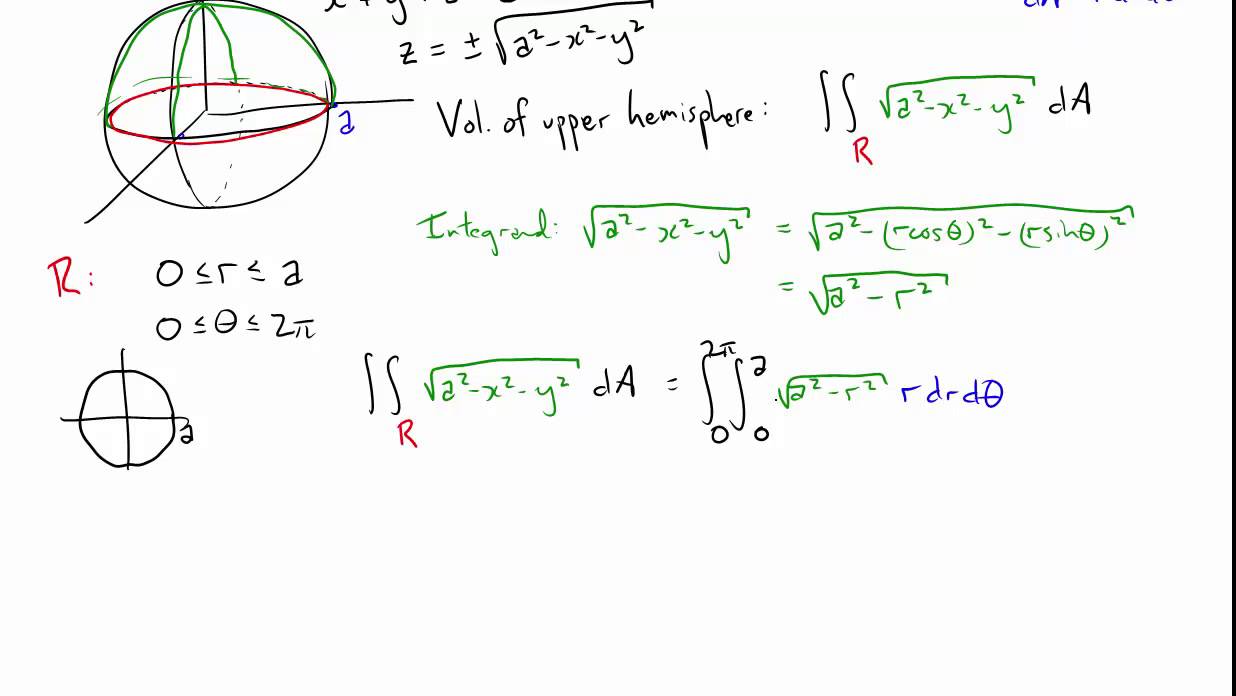 z = ± √(a² - x² - y²)
Vol. of upper hemisphere: ∬ √(a² - x² - y²) dA
R
a
Integrand: √(a² - x² - y²) = √(a² - (r cos θ)² - (r sin θ)²)
= √(a² - r²)
R: 0 ≤ r ≤ a
0 ≤ θ ≤ 2π
∬ √(a² - x² - y²) dA = ∫₀^2π ∫₀^a √(a² - r²) r dr dθ
R
a